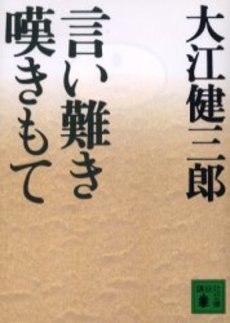 大江健三郎
言い難き
嘆きもて